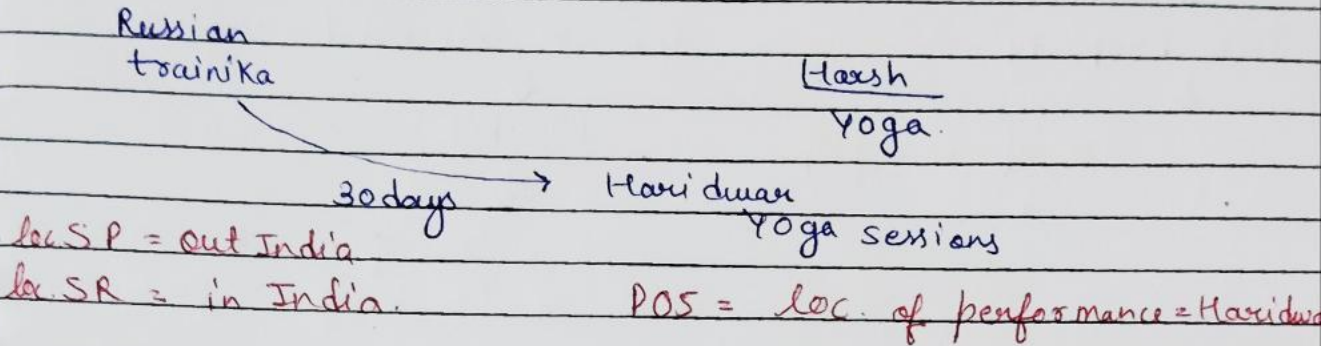 Russian
trainika
Harsh
Yoga.
30 days → Haridwar
Yoga sessions
loc SP = out India
loc. SR = in India.
POS = loc. of performance = Haridwa